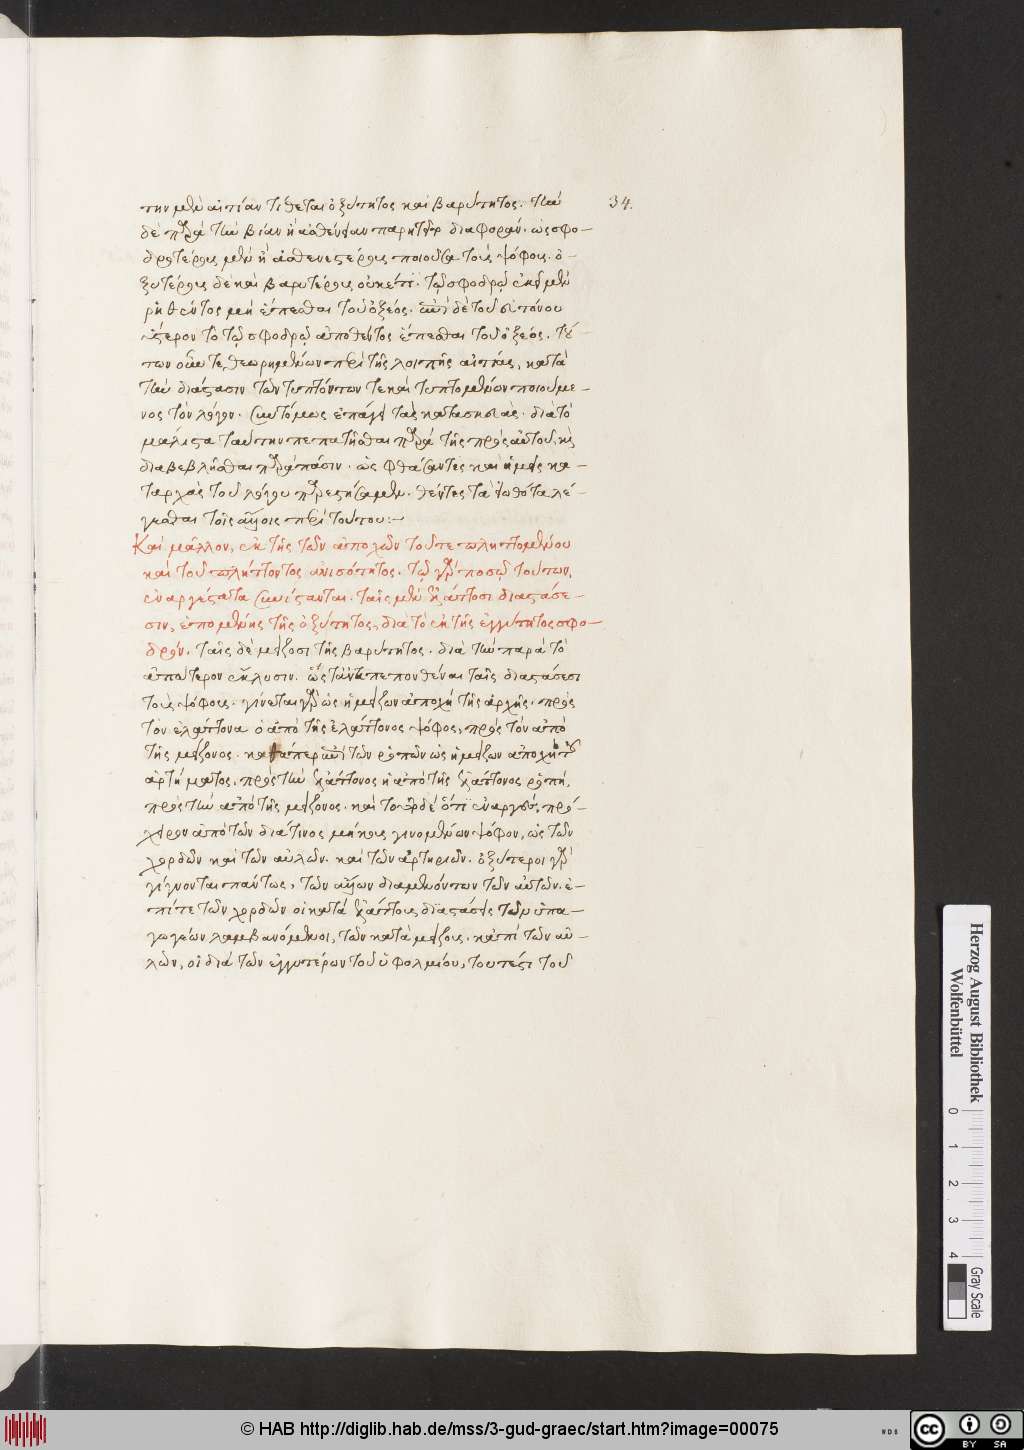 την μὲν αἰτίαν τίθεται ὀξύτητος καὶ βαρύτητος. τὴν
34.
δὲ παρὰ τὴν βίαν ἢ ἀσθένειαν παρῃτεῖτο διαφοράν. ὡς σφο-
δροτέρους μὲν ἢ ἀσθενεστέρους ποιοῦσα τοὺς ψόφους. ὀ-
ξυτέρους δὲ καὶ βαρυτέρους οὐκέτι. τῷ σφοδρῷ ἐκεῖ μὲν
ρηθέντος μὴ ἕπεσθαι τοῦ ὀξέος. δὲ τοῦ συντόνου
ὕστερον τὸ τῷ σφοδρῷ ἀποθέντος ἕπεσθαι τοῦ ὀξέος. τού-
των οὖν τεθεωρημένων περὶ τῆς λοιπῆς αἰτίας, κατὰ
τὴν διάστασιν τῶν τυπτόντων τε καὶ τυπτομένων ποιούμε-
νος τὸν λόγον. συντόμως ἐπάγει τὰς κατασκευάς. διὰ τὸ
μάλιστα ταύτην πεπατῆσθαι παρὰ τῆς πρὸς αὐτοῦ, καὶ
διαβεβλῆσθαι παρὰ πᾶσιν. ὡς φθάσαντες καὶ ἡμεῖς κα-
ταρχὰς τοῦ λόγου παρεστήσαμεν. θέντες τὰ εἰωθότα λέ-
γεσθαι τοῖς ἄλλοις περὶ τούτου:-
Καὶ μᾶλλον, ἐκ τῆς τῶν ἀποχῶν τοῦ τε πληττομένου
καὶ τοῦ πλήττοντος ἀνισότητος. τῷ γὰρ ποσῷ τούτων,
ἐναργέστατα συνίστανται. ταῖς μὲν ἐλάττοσι διαστάσε-
σιν, ἑπομένης τῆς ὀξύτητος, διὰ τὸ ἐκ τῆς ἐγγύτητος σφο-
δρόν. ταῖς δὲ μείζοσι τῆς βαρύτητος. διὰ τὴν παρὰ τὸ
ἀπωτέρον ἔκλυσιν. ὥστ' ἀντιπεπονθέναι ταῖς διαστάσεσι
τοὺς ψόφους. γίνεται γὰρ ὡς ἡ μείζων ἀποχὴ τῆς ἀρχῆς. πρὸς
τὸν ἐλάττονα ὁ ἀπὸ τῆς ἐλάττονος ψόφος, πρὸς τὸν ἀπὸ
τῆς μείζονος. καθάπερ ἐπὶ τῶν ῥοπῶν ὡς ἡ μείζων ἀποχὴ τοῦ
ἀρτήματος, πρὸς τὴν ἐλάττονος ἡ ἀπὸ τῆς ἐλάττονος ῥοπὴ,
πρὸς τὴν ἀπὸ τῆς μείζονος. καὶ τοῦτο δέ ὅτι ἐναργὲς, πρό-
χειρον ἀπὸ τῶν διά τινος μήκους γινομένων ψόφων, ὡς τῶν
χορδῶν καὶ τῶν αὐλῶν. καὶ τῶν ἀρτηριῶν. ὀξύτεροι γὰρ
γίγνονται πάντως, τῶν ἄλλων διαμενόντων τῶν αὐτῶν. ἐ-
πί τε τῶν χορδῶν οἱ κατὰ ἐλάττους διαστάσεις τῶν ὑπα-
γωγέων λαμβανόμενοι, τῶν κατὰ μείζους. κἀπὶ τῶν αὐ-
λῶν, οἱ διὰ τῶν ἐγγυτέρων τοῦ ὑφολμίου, τουτέστι τοῦ
Herzog August Bibliothek
Wolfenbüttel
0 1 2 3 4
Gray Scale
© HAB http://diglib.hab.de/mss/3-gud-graec/start.htm?image=00075
WDB
cc BY SA